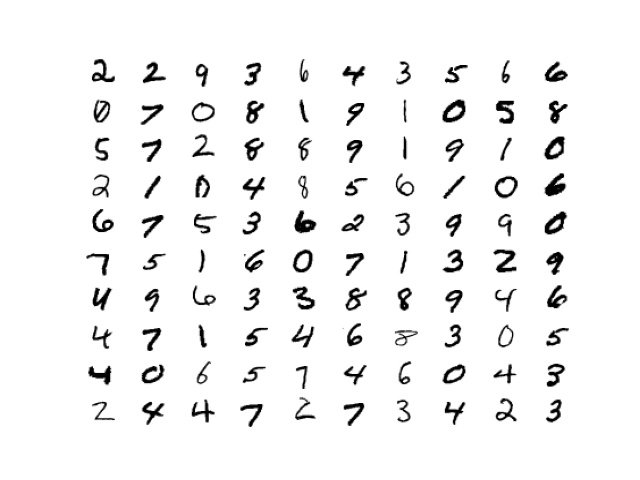 2 2 9 3 6 4 3 5 6 6
0 7 0 8 1 9 1 0 5 8
5 7 2 8 8 9 1 9 1 0
2 1 0 4 8 5 6 1 0 6
6 7 5 3 6 2 3 9 9 0
7 5 1 6 0 7 1 3 2 9
4 9 6 3 3 8 8 9 4 6
4 7 1 5 4 6 8 3 0 5
4 0 6 5 7 4 6 0 4 3
2 4 4 7 2 7 3 4 2 3